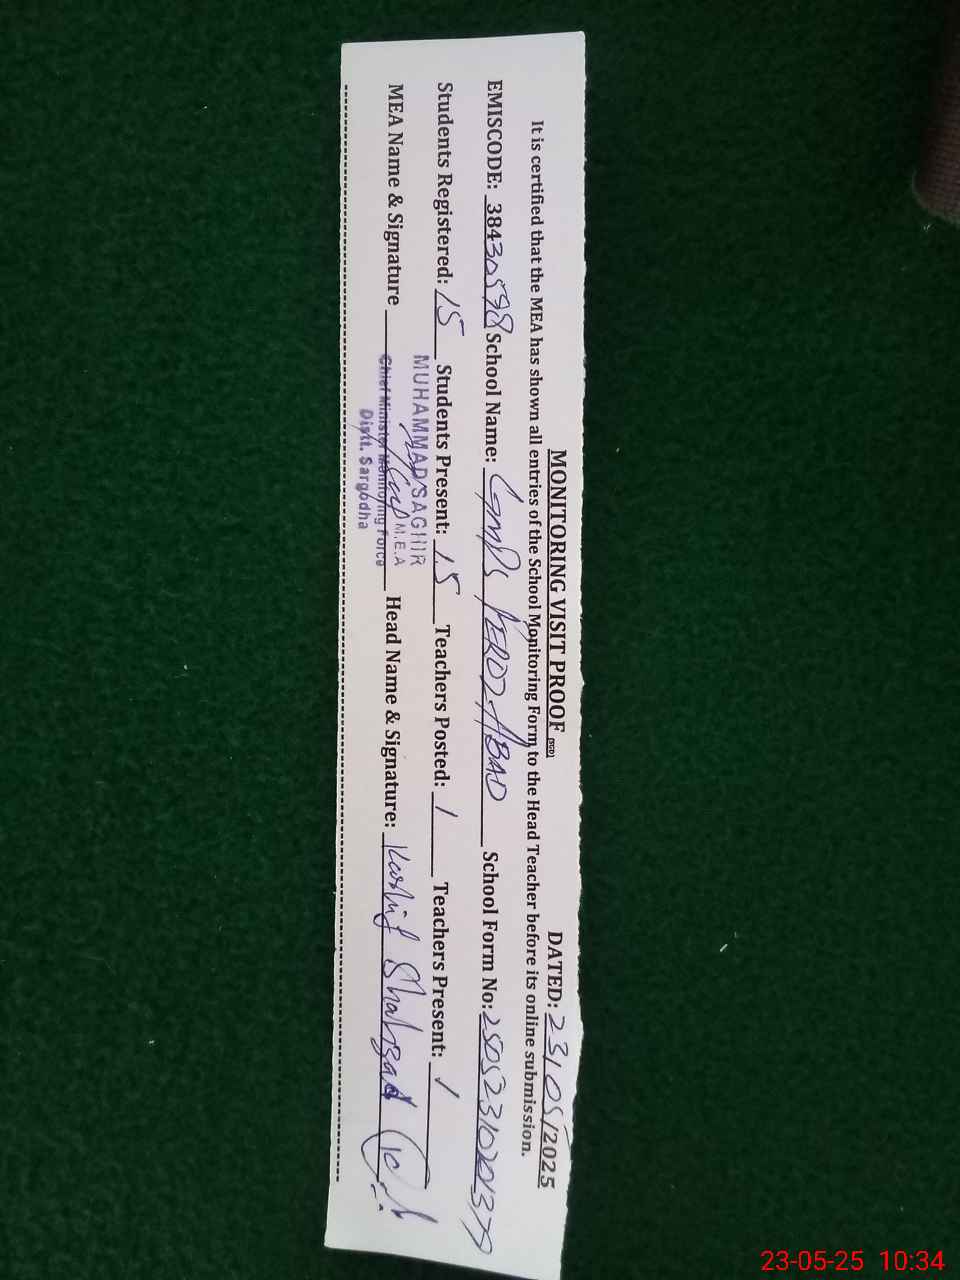 MONITORING VISIT PROOF (SGD) DATED: 23/05/2025
It is certified that the MEA has shown all entries of the School Monitoring Form, to the Head Teacher before its online submission.
EMISCODE: 38430598 School Name: GMPS FEROZABAD School Form No:
Students Registered: 15 Students Present: 15 Teachers Posted: 1 Teachers Present: 1
MUHAMMAD SAGHIR
M.E.A
MEA Name & Signature Head Name & Signature: Kashif Shahzad
Chief Minister Monitoring Force
Distt. Sargodha
23-05-25 10:34